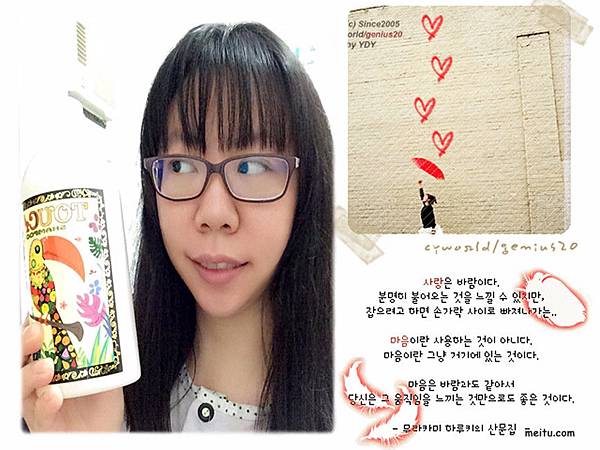 c) Since2005
orld/genius20
by YDY
TOUC
cyworld/genius20
사랑은 바람이다.
분명히 불어오는 것을 느낄 수 있지만,
잡으려고 하면 손가락 사이로 빠져나가는..
마음이란 사용하는 것이 아니다.
마음이란 그냥 거기에 있는 것이다.
마음은 바람과도 같아서
당신은 그 움직임을 느끼는 것만으로도 좋은 것이다.
- 무라카미 하루키의 산문집 -
meitu.com